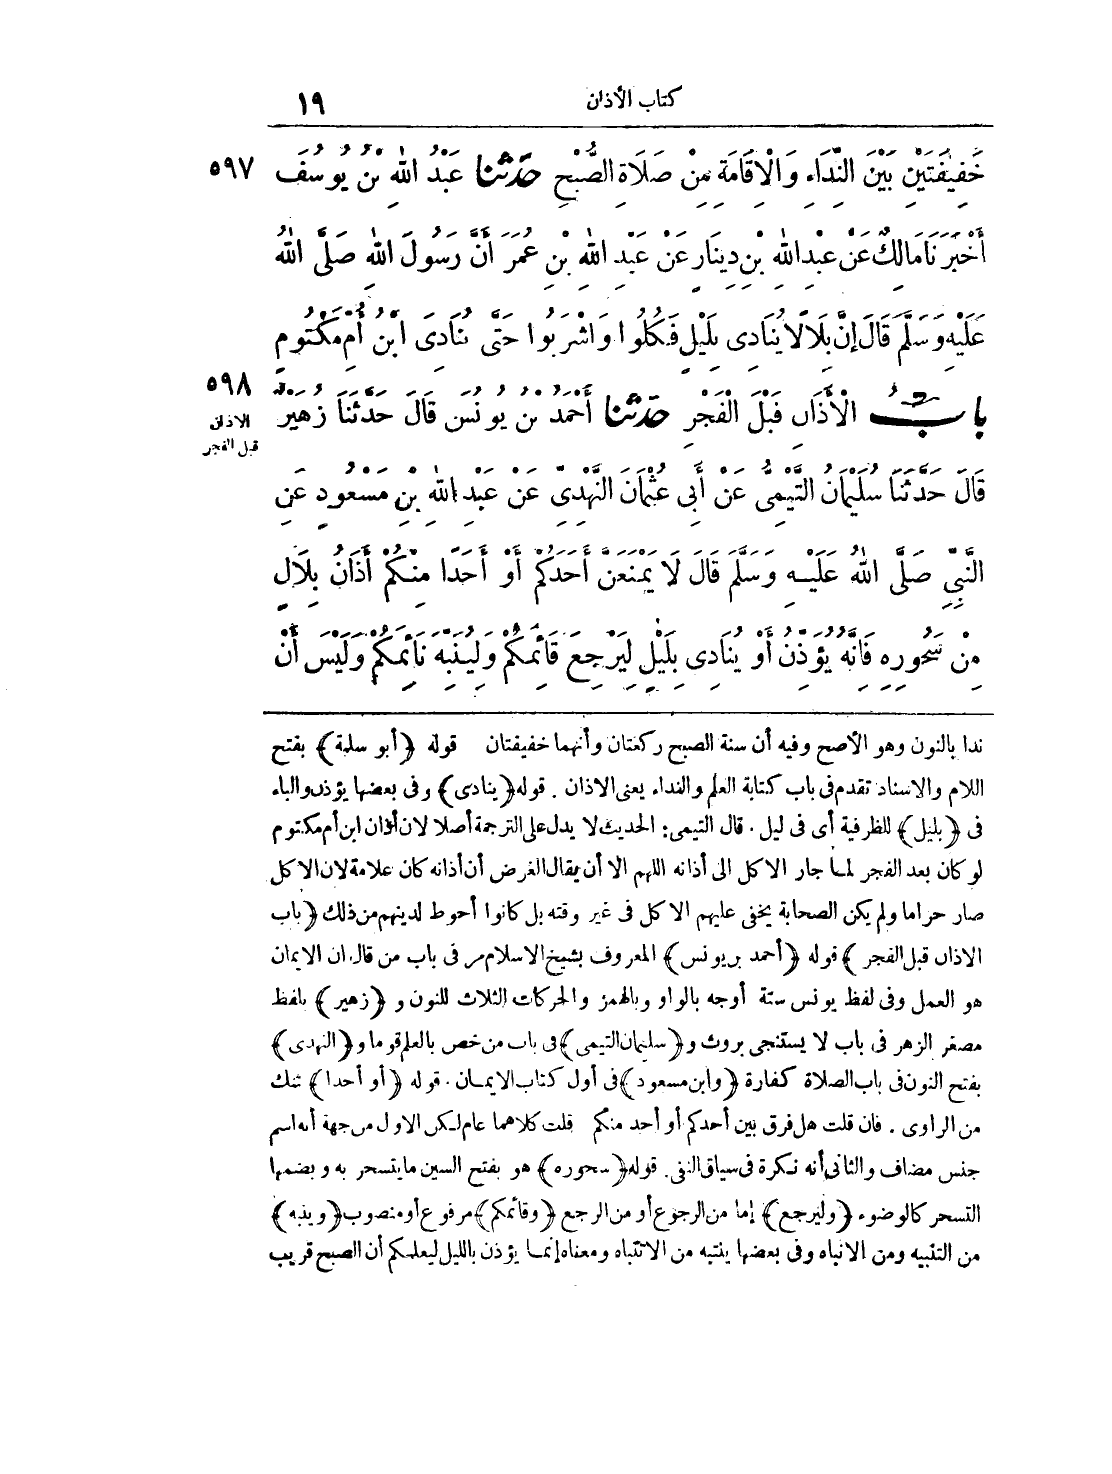 كتاب الأذان ١٩
خَفِيفَتَيْنِ بَيْنَ النِّدَاءِ وَالْاِقَامَةِ مِنْ صَلَاةِ الصُّبْحِ حَدَّثَنَا عَبْدُ اللهِ بْنُ يُوسُفَ ٥٩٧
أَخْبَرَنَا مَالِكٌ عَنْ عَبْدِ اللهِ بْنِ دِينَارٍ عَنْ عَبْدِ اللهِ بْنِ عُمَرَ أَنَّ رَسُولَ اللهِ صَلَّى اللهُ
عَلَيْهِ وَسَلَّمَ قَالَ إِنَّ بِلَالًا يُنَادِى بِلَيْلٍ فَكُلُوا وَاشْرَبُوا حَتَّى يُنَادِىَ ابْنُ أُمِّ مَكْتُومٍ
بابُ الْأَذَانِ قَبْلَ الْفَجْرِ حَدَّثَنَا أَحْمَدُ بْنُ يُونُسَ قَالَ حَدَّثَنَا زُهَيْرٌ ٥٩٨
الاذان
قبل الفجر
قَالَ حَدَّثَنَا سُلَيْمَانُ التَّيْمِىُّ عَنْ أَبِى عُثْمَانَ النَّهْدِىِّ عَنْ عَبْدِ اللهِ بْنِ مَسْعُودٍ عَنِ
النَّبِىِّ صَلَّى اللهُ عَلَيْهِ وَسَلَّمَ قَالَ لَا يَمْنَعَنَّ أَحَدَكُمْ أَوْ أَحَدًا مِنْكُمْ أَذَانُ بِلَالٍ
مِنْ سَحُورِهِ فَانَّهُ يُؤَذِّنُ أَوْ يُنَادِى بِلَيْلٍ لِيَرْجِعَ قَائِمَكُمْ وَلِيُنَبِّهَ نَائِمَكُمْ وَلَيْسَ أَنْ
ندا بالنون وهو الأصح وفيه أن سنة الصبح ركعتان وأنهما خفيفتان قوله ﴿أبو سلمة﴾ بفتح
اللام والاسناد تقدم فى باب كتابة العلم والنداء يعنى الاذان . قوله ﴿ينادى﴾ وفى بعضها يؤذن والباء
فى ﴿بليل﴾ للظرفية أى فى ليل . قال التيمى: الحديث لا يدل على الترجمة أصلا لان أذان ابن أم مكتوم
لو كان بعد الفجر لما جاز الاكل الى أذانه اللهم الا أن يقال الغرض أن أذانه كان علامة لان الاكل
صار حراما ولم يكن الصحابة يخفى عليهم الاكل فى غير وقته بل كانوا أحوط لدينهم من ذلك ﴿باب
الاذان قبل الفجر﴾ قوله ﴿أحمد بن يونس﴾ المعروف بشيخ الاسلام مر فى باب من قال ان الايمان
هو العمل وفى لفظ يونس ستة أوجه بالواو وبالهمز والحركات الثلاث للنون و ﴿زهير﴾ بلفظ
مصغر الزهر فى باب لا يستنجى بروث و ﴿سليمان التيمى﴾ فى باب من خص بالعلم قوما و ﴿النهدى﴾
بفتح النون فى باب الصلاة كفارة ﴿وابن مسعود﴾ فى أول كتاب الايمان . قوله ﴿أو أحدا﴾ شك
من الراوى . فان قلت هل فرق بين أحدكم أو أحد منكم قلت كلاهما عام لكن الاول من جهة أنه اسم
جنس مضاف والثانى أنه نكرة فى سياق النفى. قوله ﴿سحوره﴾ هو بفتح السين ما يتسحر به وبضمها
التسحر كالوضوء ﴿وليرجع﴾ إما من الرجوع أو من الرجع ﴿وقائمكم﴾ مرفوع أو منصوب ﴿وينبه﴾
من التنبيه ومن الانباه وفى بعضها ينتبه من الانتباه ومعناه إنما يؤذن بالليل ليعلمكم أن الصبح قريب